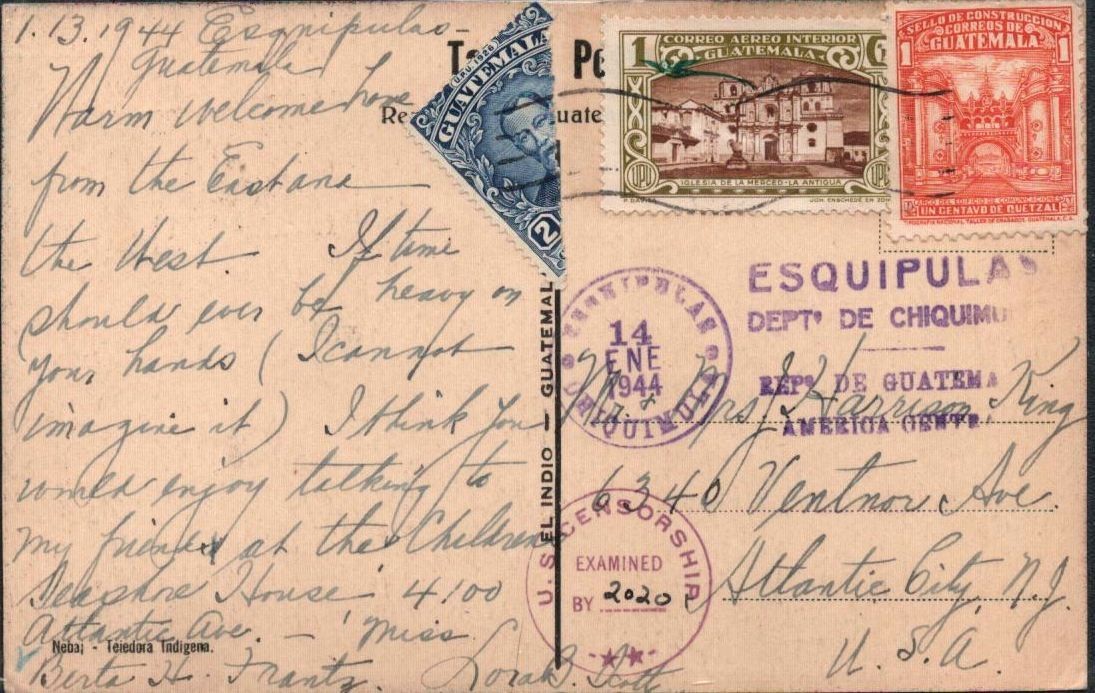 1.13.1944 Esquipulas -
Guatemala
Warm welcome here
from the East and
the West If time
should ever be heavy on
your hands (I cannot
imagine it) I think you
would enjoy talking to
my friend at the Children
Seashore House 4100
Atlantic Ave. - Miss
Berta H. Frantz. Lora B. Scott
Nebaj - Tejedora Indigena.
U.P.U. 1926
GUATEMALA
2
Ta Po
Re uate
CORREO AEREO INTERIOR
1 GUATEMALA
UPU UPU
IGLESIA DE LA MERCED-LA ANTIGUA
P. DAVILA JOH. ENSCHEDÉ EN ZON
SELLO DE CONSTRUCCION
CORREOS DE
1 GUATEMALA 1
ARCO DEL EDIFICIO DE COMUNICACIONES
UN CENTAVO DE QUETZAL
EL INDIO - GUATEMAL
ESQUIPULAS
DEPTº DE CHIQUIMU
REPº DE GUATEMA
AMERICA CENTR
ESQUIPULAS
14
ENE
1944
CHIQUIMULA
Mr. & Mrs. J. Harrison King
6340 Ventnor Ave.
Atlantic City, N.J.
U.S.A.
U.S. CENSORSHIP
EXAMINED
BY 2020